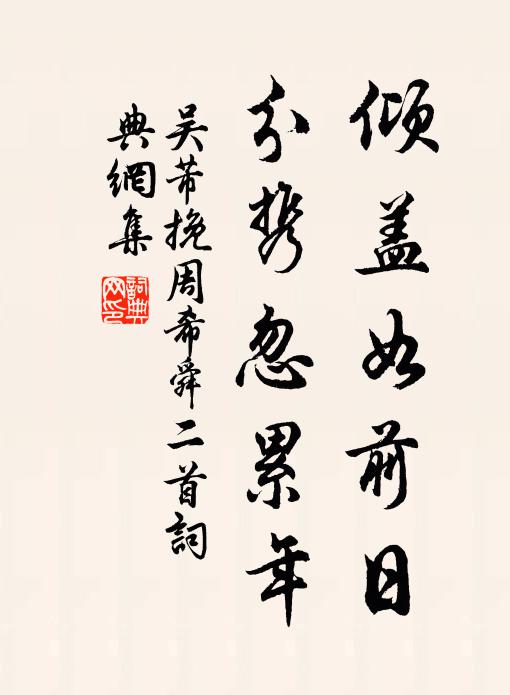 傾盖如前日
分携忽累年
吴芾挽周希舜二首詞
典網集
詞典
网印